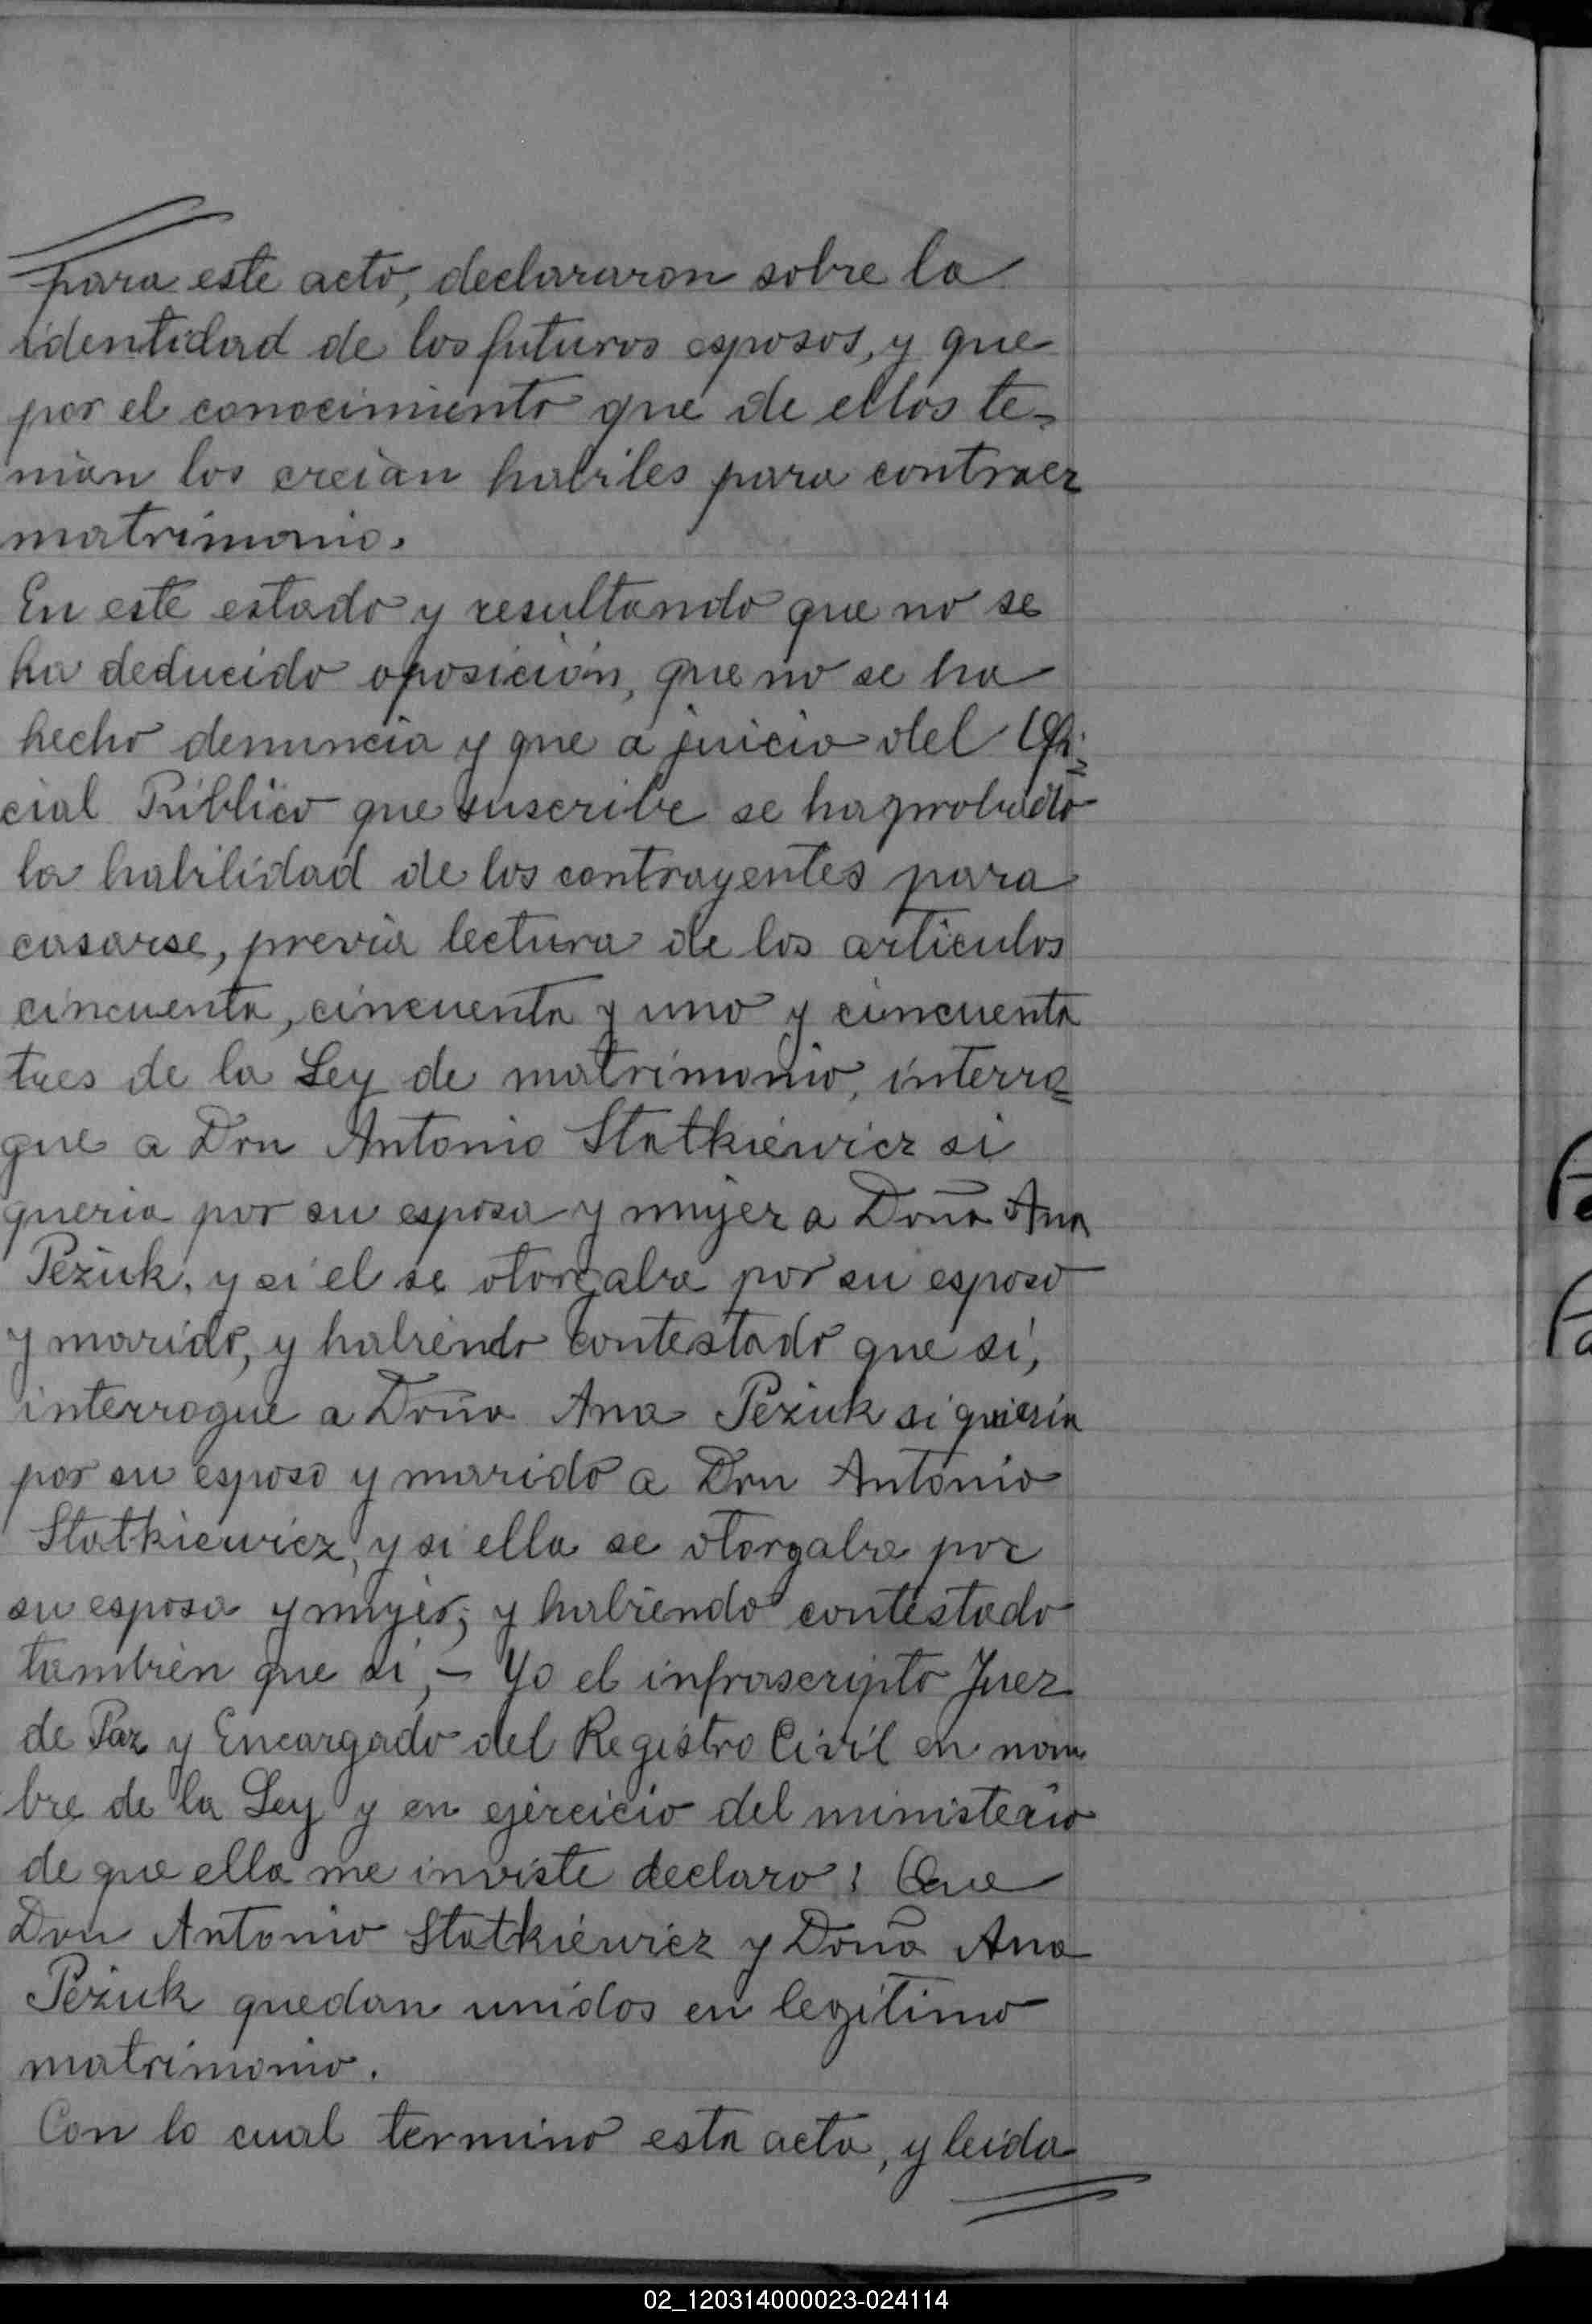 para este acto, declararon sobre la
identidad de los futuros esposos, y que
por el conocimiento que de ellos te-
nian los creian habiles para contraer
matrimonio.
En este estado y resultando que no se
ha deducido oposición, que no se ha
hecho denuncia y que a juicio del Ofi-
cial Público que suscribe se ha probado
la habilidad de los contrayentes para
casarse, previa lectura de los articulos
cincuenta, cincuenta y uno y cincuenta
tres de la Ley de matrimonio, interro-
gue a Don Antonio Statkiewicz si
queria por su esposa y mujer a Doña Ana
Peżuk, y si el se otorgaba por su esposo
y marido, y habiendo contestado que si,
interrogue a Doña Ana Peżuk si quieria
por su esposo y marido a Don Antonio
Statkiewicz, y si ella se otorgaba por
su esposa y mujer; y habiendo contestado
tambien que si, - Yo el infrascripto Juez
de Paz y Encargado del Registro Civil en nom
bre de la Ley y en ejercicio del ministerio
de que ella me inviste declaro: Que
Don Antonio Statkiewicz y Doña Ana
Peżuk quedan unidos en legitimo
matrimonio.
Con lo cual termino esta acta, y leida
02_120314000023-024114